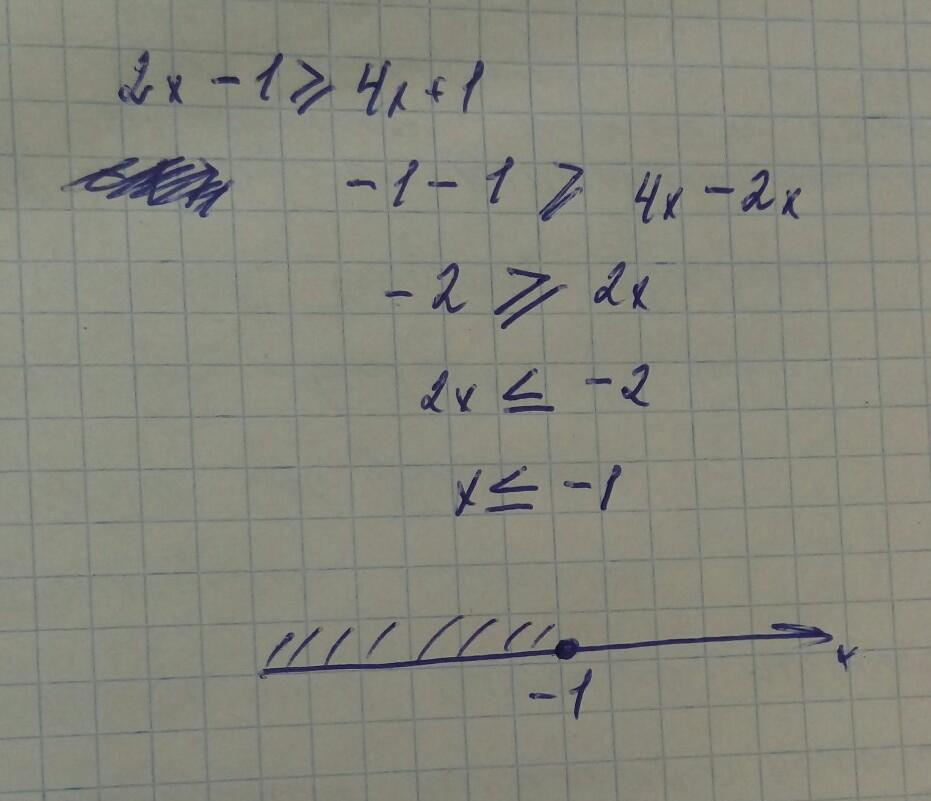 2x - 1 ⩾ 4x + 1
-1 - 1 ⩾ 4x - 2x
-2 ⩾ 2x
2x ≤ -2
x ≤ -1
x
-1